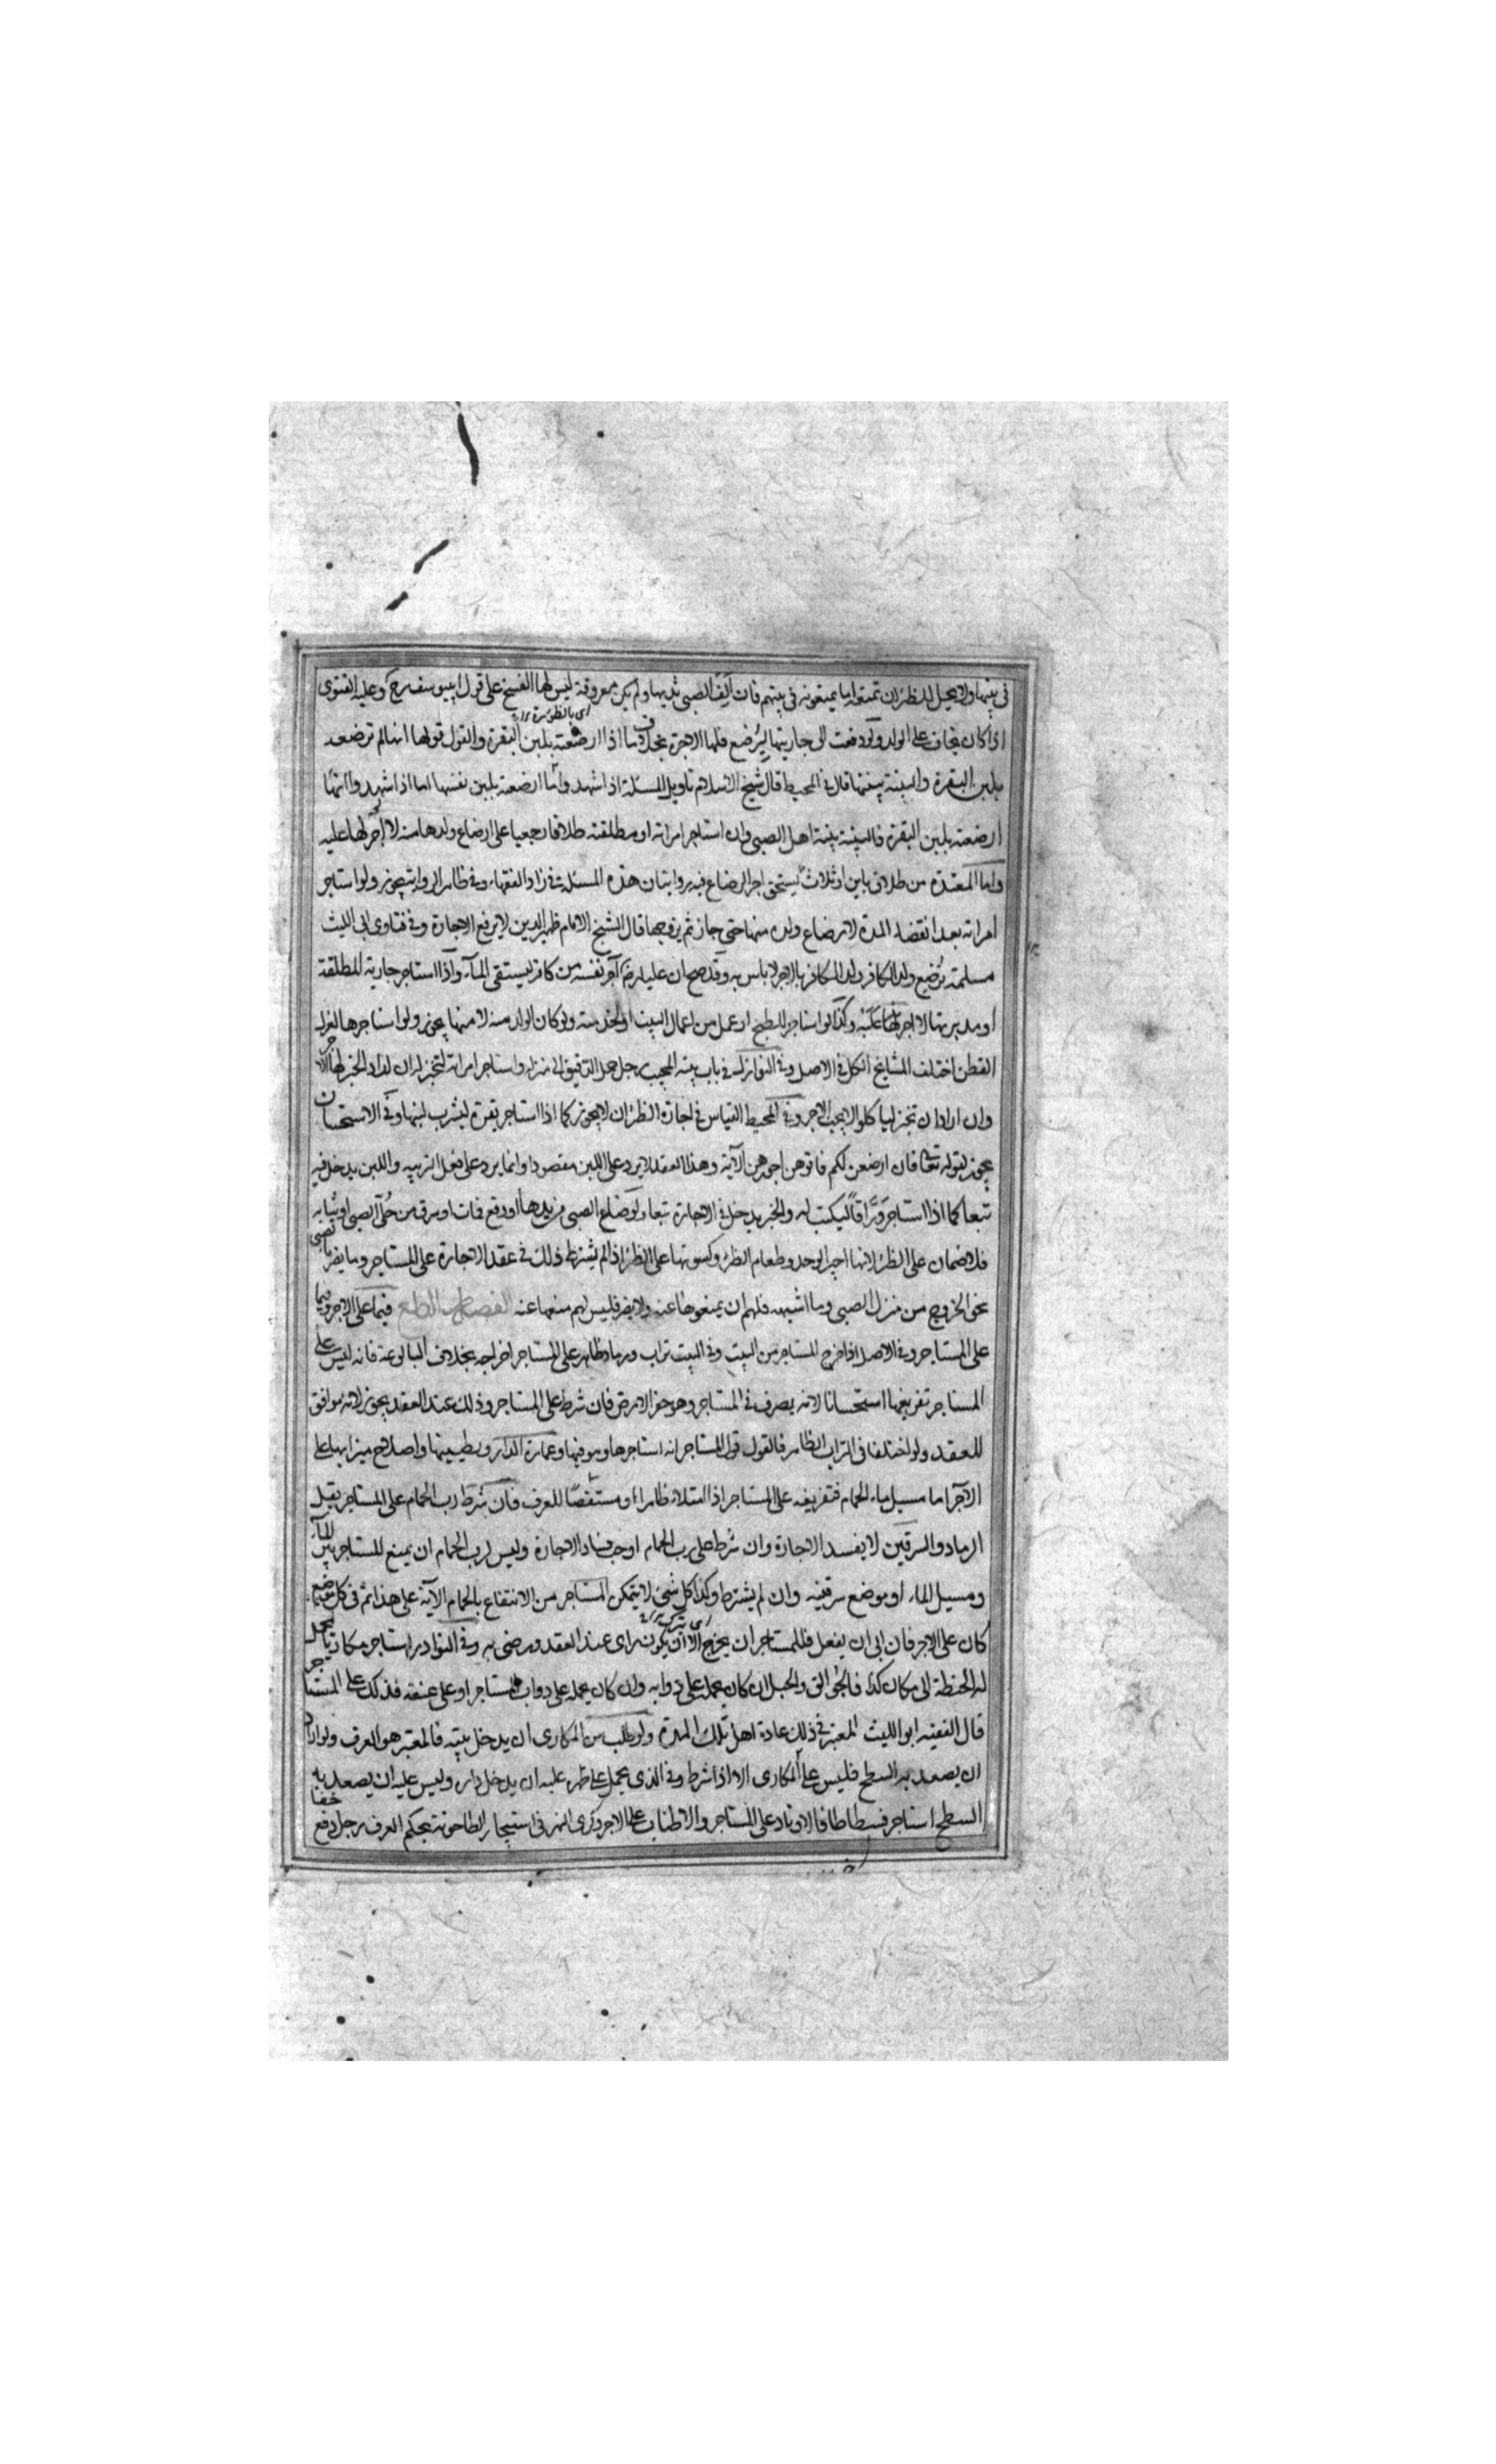 في بيتها ولا يحل للظئر ان تمتعه اما يمتعونه في بيتهم فان الف الصبي ثديها ولم يكن معروفة ليس لها الفسخ على قول ابي يوسف رح وعليه الفتوى
اي بالظئورة
اذا كان يخاف على الولد ولو دفعت الى جاريتها ليرضع فلها الاجرة بخلاف ما اذا ارضعته بلبن البقرة والقول قولها انها لم ترضعه
بلبن البقرة والبينة بينتها قال في المحيط قال شيخ الاسلام تاويل المسئلة اذا شهدوا انها ارضعته بلبن نفسها اما اذا شهدوا انها
ارضعته بلبن البقرة فالبينة بينة اهل الصبي وان استاجر امراته او مطلقته طلاقا رجعيا على ارضاع ولدها منه لا اجر لها عليه
واما المعتدة من طلاق باين او ثلاث يستحق اجر الرضاع فيه روايتان هذه المسئلة في زاد الفقهاء وفي ظاهر الرواية يجوز ولو استاجر
امراته بعد انقضاء المدة لارضاع ولده منها حتى جاز ثم تزوجها قال الشيخ الامام ظهير الدين لا يرفع الاجارة وفي فتاوى ابي الليث
مسلمة ترضع ولد الكافر بالاجر لا باس به وقد صح ان عليا رض آجر نفسه من كافر ليستقي الماء واذا استاجر جارية المطلقة
او مدبرتها لا اجر لها عليه وكذا لو استاجر للطبخ او عمل من اعمال البيت او الخدمة ولو كان الولد منه لا منها يجوز ولو استاجرها لغزل
القطن اختلف المشايخ الكل في الاصل وفي النوازل في باب بيته المجيب رجل حمل الدقيق الى منزله واستاجر امراته لتخبز له ان اراد الخبز لها الاجر
وان اراد ان تخبز لياكلوا لا يجب الاجر وفي المحيط القياس في اجازة الظئر ان لا يجوز كما اذا استاجر بقرة ليشرب لبنها وفي الاستحسان
يجوز لقوله تعالى فان ارضعن لكم فاتوهن اجورهن الآية وهذا العقد لا يرد على اللبن مقصودا وانما يرد على فعل التربية واللبن يدخل فيه
تبعا كما اذا استاجر وراقا ليكتب له والحبر يدخل في الاجارة تبعا ولو ضاع الصبي من يدها او وقع فمات او سرق من حلي الصبي او ثيابه
فلا ضمان على الظئر لانها اجير الوحد وطعام الظئر وكسوتها على الظئر اذا لم يشترط ذلك في عقد الاجارة على المستاجر وما يضر بالصبي
نحو الخروج من منزل الصبي وما اشبهه فلهم ان يمنعوها عنه ولا يضر فليس لهم منعها عنه الفصل الرابع فيما على الاجر وفيما
على المستاجر وفي الاصل اذا خرج المستاجر من البيت وفي البيت تراب ورماد ظاهر على المستاجر اخراجه بخلاف البالوعة فانه ليس على
المستاجر تفريغها استحسانا لانه يصرف في المستاجر وهو حفر الارض فان شرط على المستاجر وذلك عند العقد يجوز لانه موافق
للعقد ولو اختلفا في التراب الظاهر فالقول قول المستاجر انه استاجرها وهو فيها وعمارة الدار وتطيينها واصلاح ميزابها على
الآجر اما مسيل ماء الحمام فتفريغه على المستاجر اذا امتلا ظاهرا او مستنقصا للعرف فان شرط رب الحمام على المستاجر بنقل
الرماد والسرقين لا يفسد الاجارة وان شرط على رب الحمام اوجب فساد الاجارة وليس لرب الحمام ان يمنع المستاجر بئر الماء
ومسيل الماء او موضع سرقينه وان لم يشترط وكذا كل شيء لا يتمكن المستاجر من الانتفاع بالحمام الآية على هذا ثم في كل موضع
كان على الاجر فان ابى ان يفعل فللمستاجر ان يخرج الا ان يكون راى عند العقد ورضي به وفي النوادر استاجر مكاريا ليحمل
له الحنطة الى مكان كذا فالجوالق والحبل ان كان يحمله على دوابه وان كان يحمله على دواب المستاجر او على عنقه فذلك على المستاجر
قال الفقيه ابو الليث المعتبر في ذلك عادة اهل تلك البلدة ولو طلب من المكاري ان يدخل بيته فالمعتبر هو العرف ولو اراد
ان يصعد به السطح فليس على المكاري الا اذا شرط وفي الذي يحمل على ظهر عليه ان يدخل داره وليس عليه ان يصعد به
السطح استاجر فسطاطا فالاوتاد على المستاجر والاطناب على الاجر وكري النهر في استيجار الطاحونة بحكم العرف رجل دفع خفا